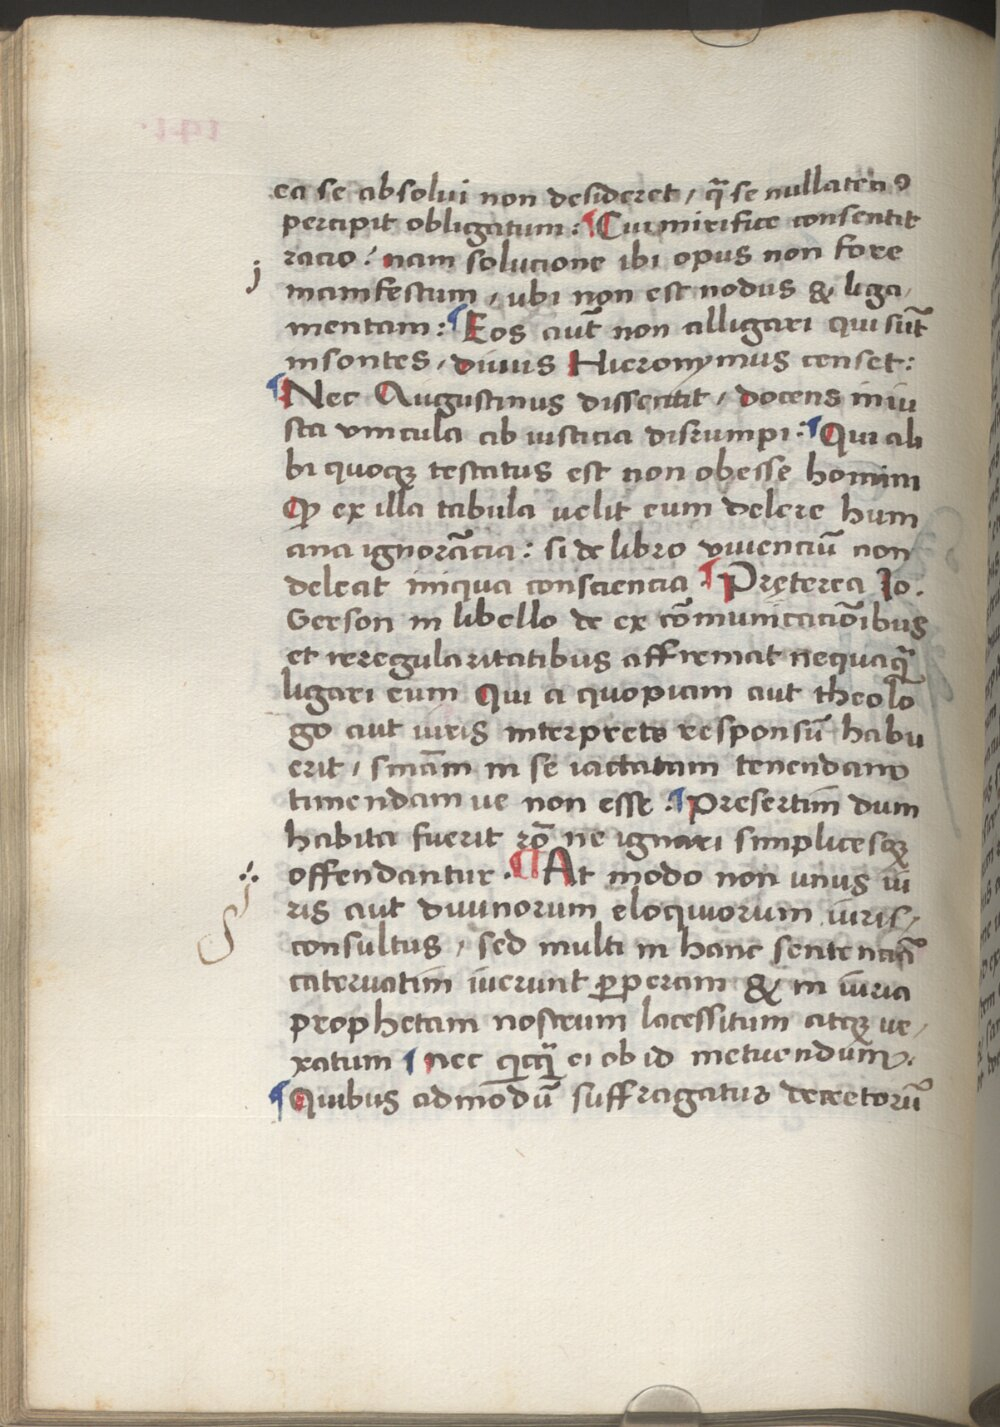 ea se absolui non desideret / q̃ se nullateꝰ
percipit obligatum : ¶ Cui mirifice consentit
racio : nam solucione ibi opus non fore
manifestum / ubi non est nodus & liga /
mentum : ¶ Eos aut̃ non alligari qui sũt
insontes / diuus Hieronymus censet :
¶ Nec Augustinus dissentit / docens iniu
sta vincula ab iusticia disrumpi : ¶ Qui ali
bi quoqꝫ testatus est non obesse homini
ꝙ ex illa tabula uelit eum delere hum
ana ignorãcia : si de libro viuenciũ non
deleat iniqua consciencia ¶ Pręterea Io .
Gerson in libello de excõmunicaciõibus
et irregularitatibus affirmat nequaq̃
ligari eum qui a quopiam aut theolo
go aut iuris interprete responsũ habu
erit / sniãm in se iactatam tenendam
timendam ue non esse : ¶ Presertim dum
habita fuerit rõ ne ignari simplicesqꝫ
offendantur . ¶ At modo non unus iu
ris aut diuinorum eloquiorum iuris /
consultus / sed multi in hanc sentenciã
cateruatim iuerunt ꝑperam & in iuria
prophetam nostrum lacessitum atqꝫ ue /
xatum ¶ nec ei ob id metuendum :
¶ Quibus admodũ suffragatur decretorũ